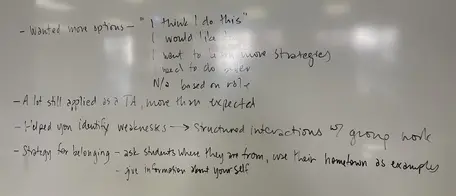 - Wanted more options - "I think I do this"
I would like
I want to learn more strategies
need to do over
N/a based on role
- A lot still applied as a TA, more than expected
- Helped you identify weaknesses → structured interactions w/ group work
- Strategy for belonging - ask students where they are from, use their hometown as examples
- give information about yourself